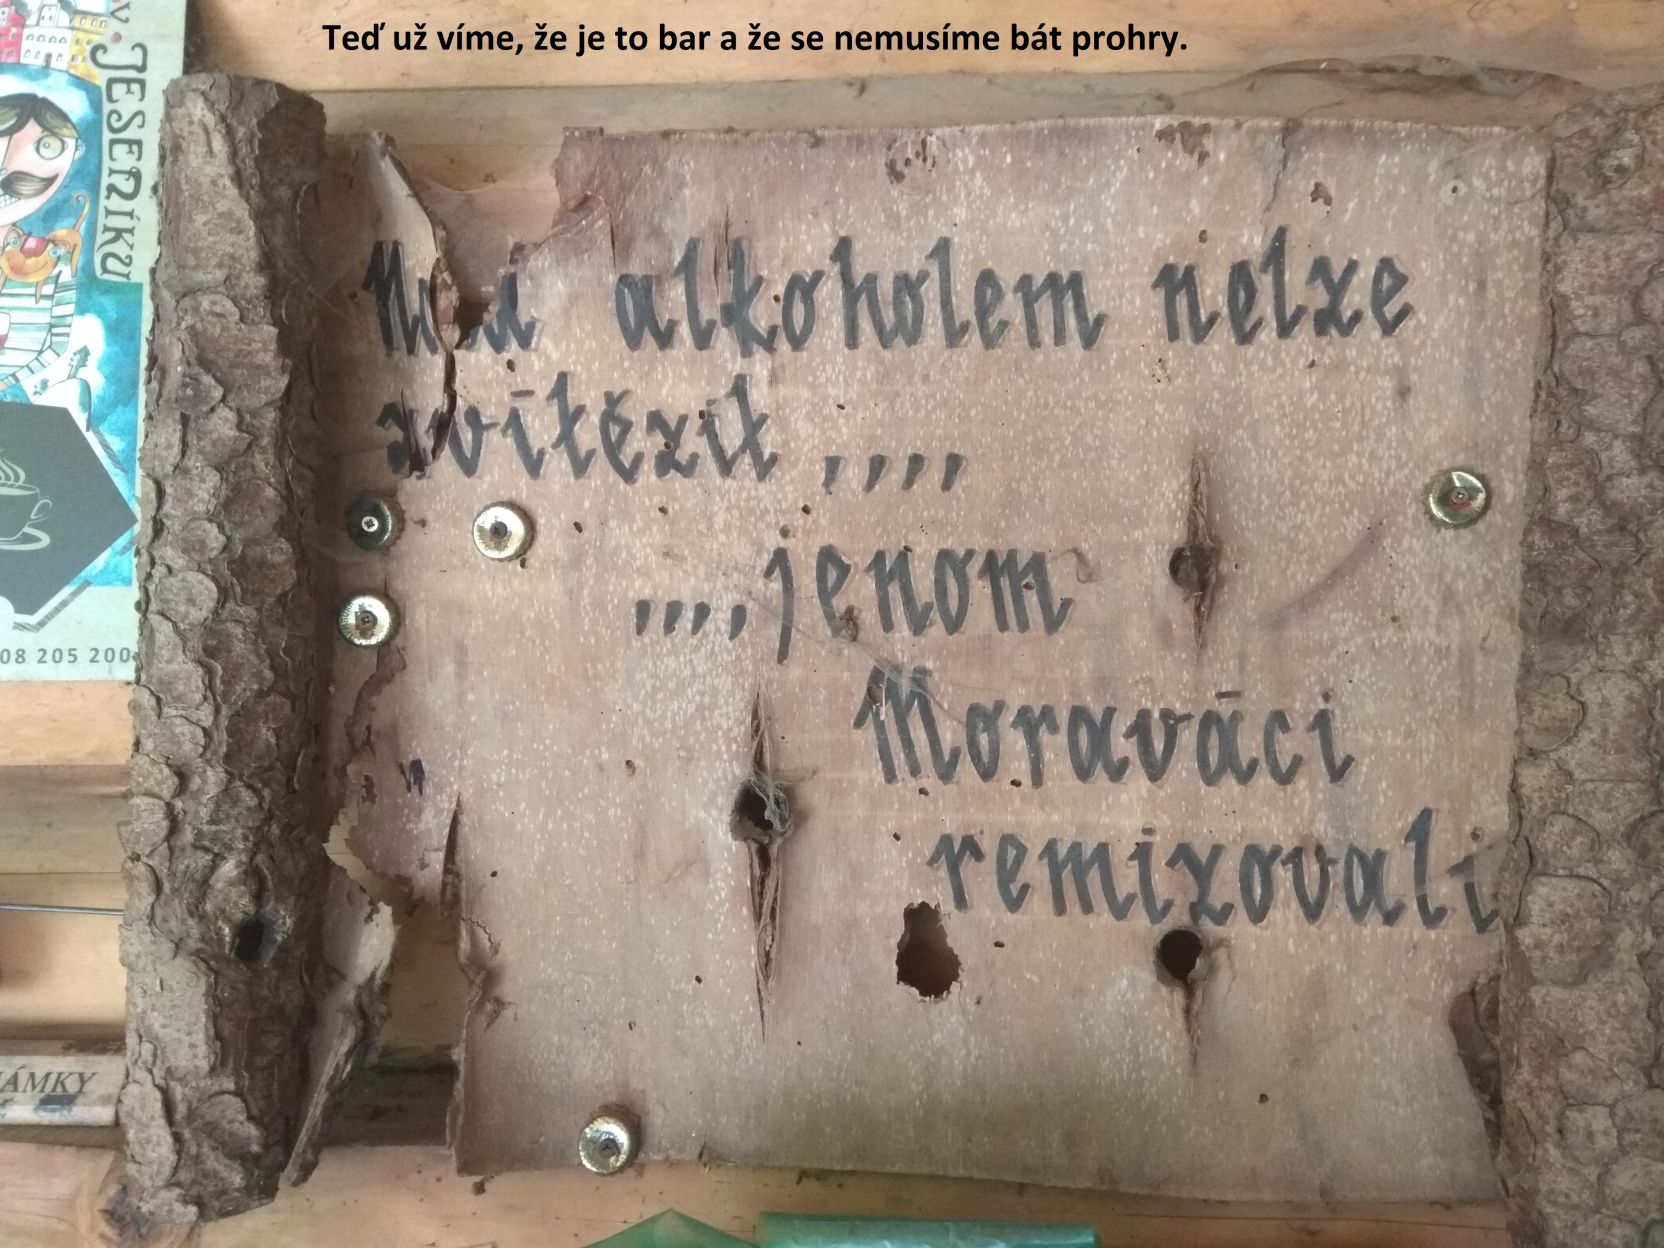 Teď už víme, že je to bar a že se nemusíme bát prohry.
v. JESENÍKU
Nad alkoholem nelze
zvítězit ,,,,
,,,,jenom
Moraváci
remizovali
08 205 200
ÁMKY